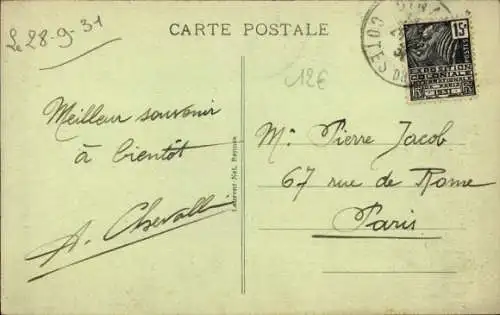 Le 28-9-31
CARTE POSTALE
12€
15c
POSTES
EXPOSITION
COLONIALE
INTERNATIONALE
PARIS 1931
Meilleur souvenir
à bientôt
Laurent-Nel, Rennes
Mr Pierre Jacob
67 rue de Rome
Paris